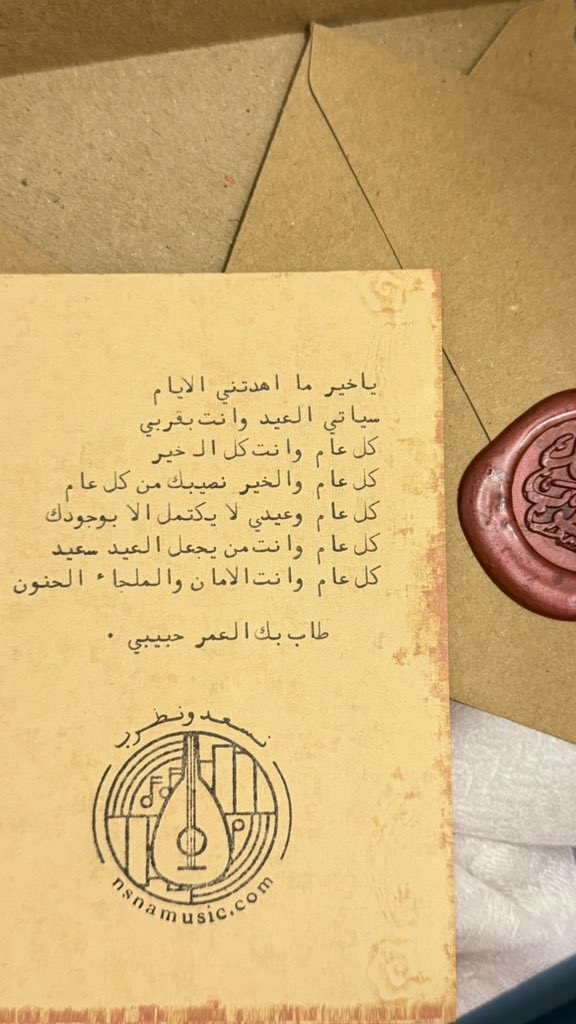 ياخير ما اهدتني الايام
سياتي العيد وانت بقربي
كل عام وانت كل الخير
كل عام والخير نصيبك من كل عام
كل عام وعيدي لا يكتمل الا بوجودك
كل عام وانت من يجعل العيد سعيد
كل عام وانت الامان والملجاء الحنون
طاب بك العمر حبيبي .
نسعد ونطرب
nsnamusic.com